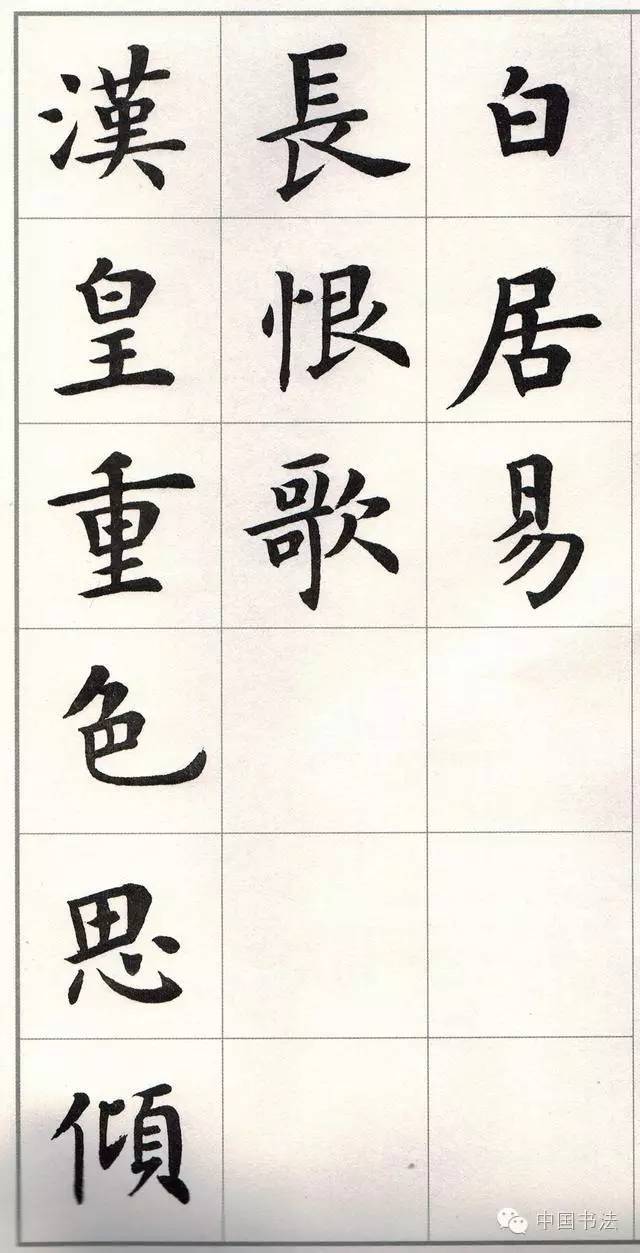 白居易
長恨歌
漢皇重色思傾
中国书法